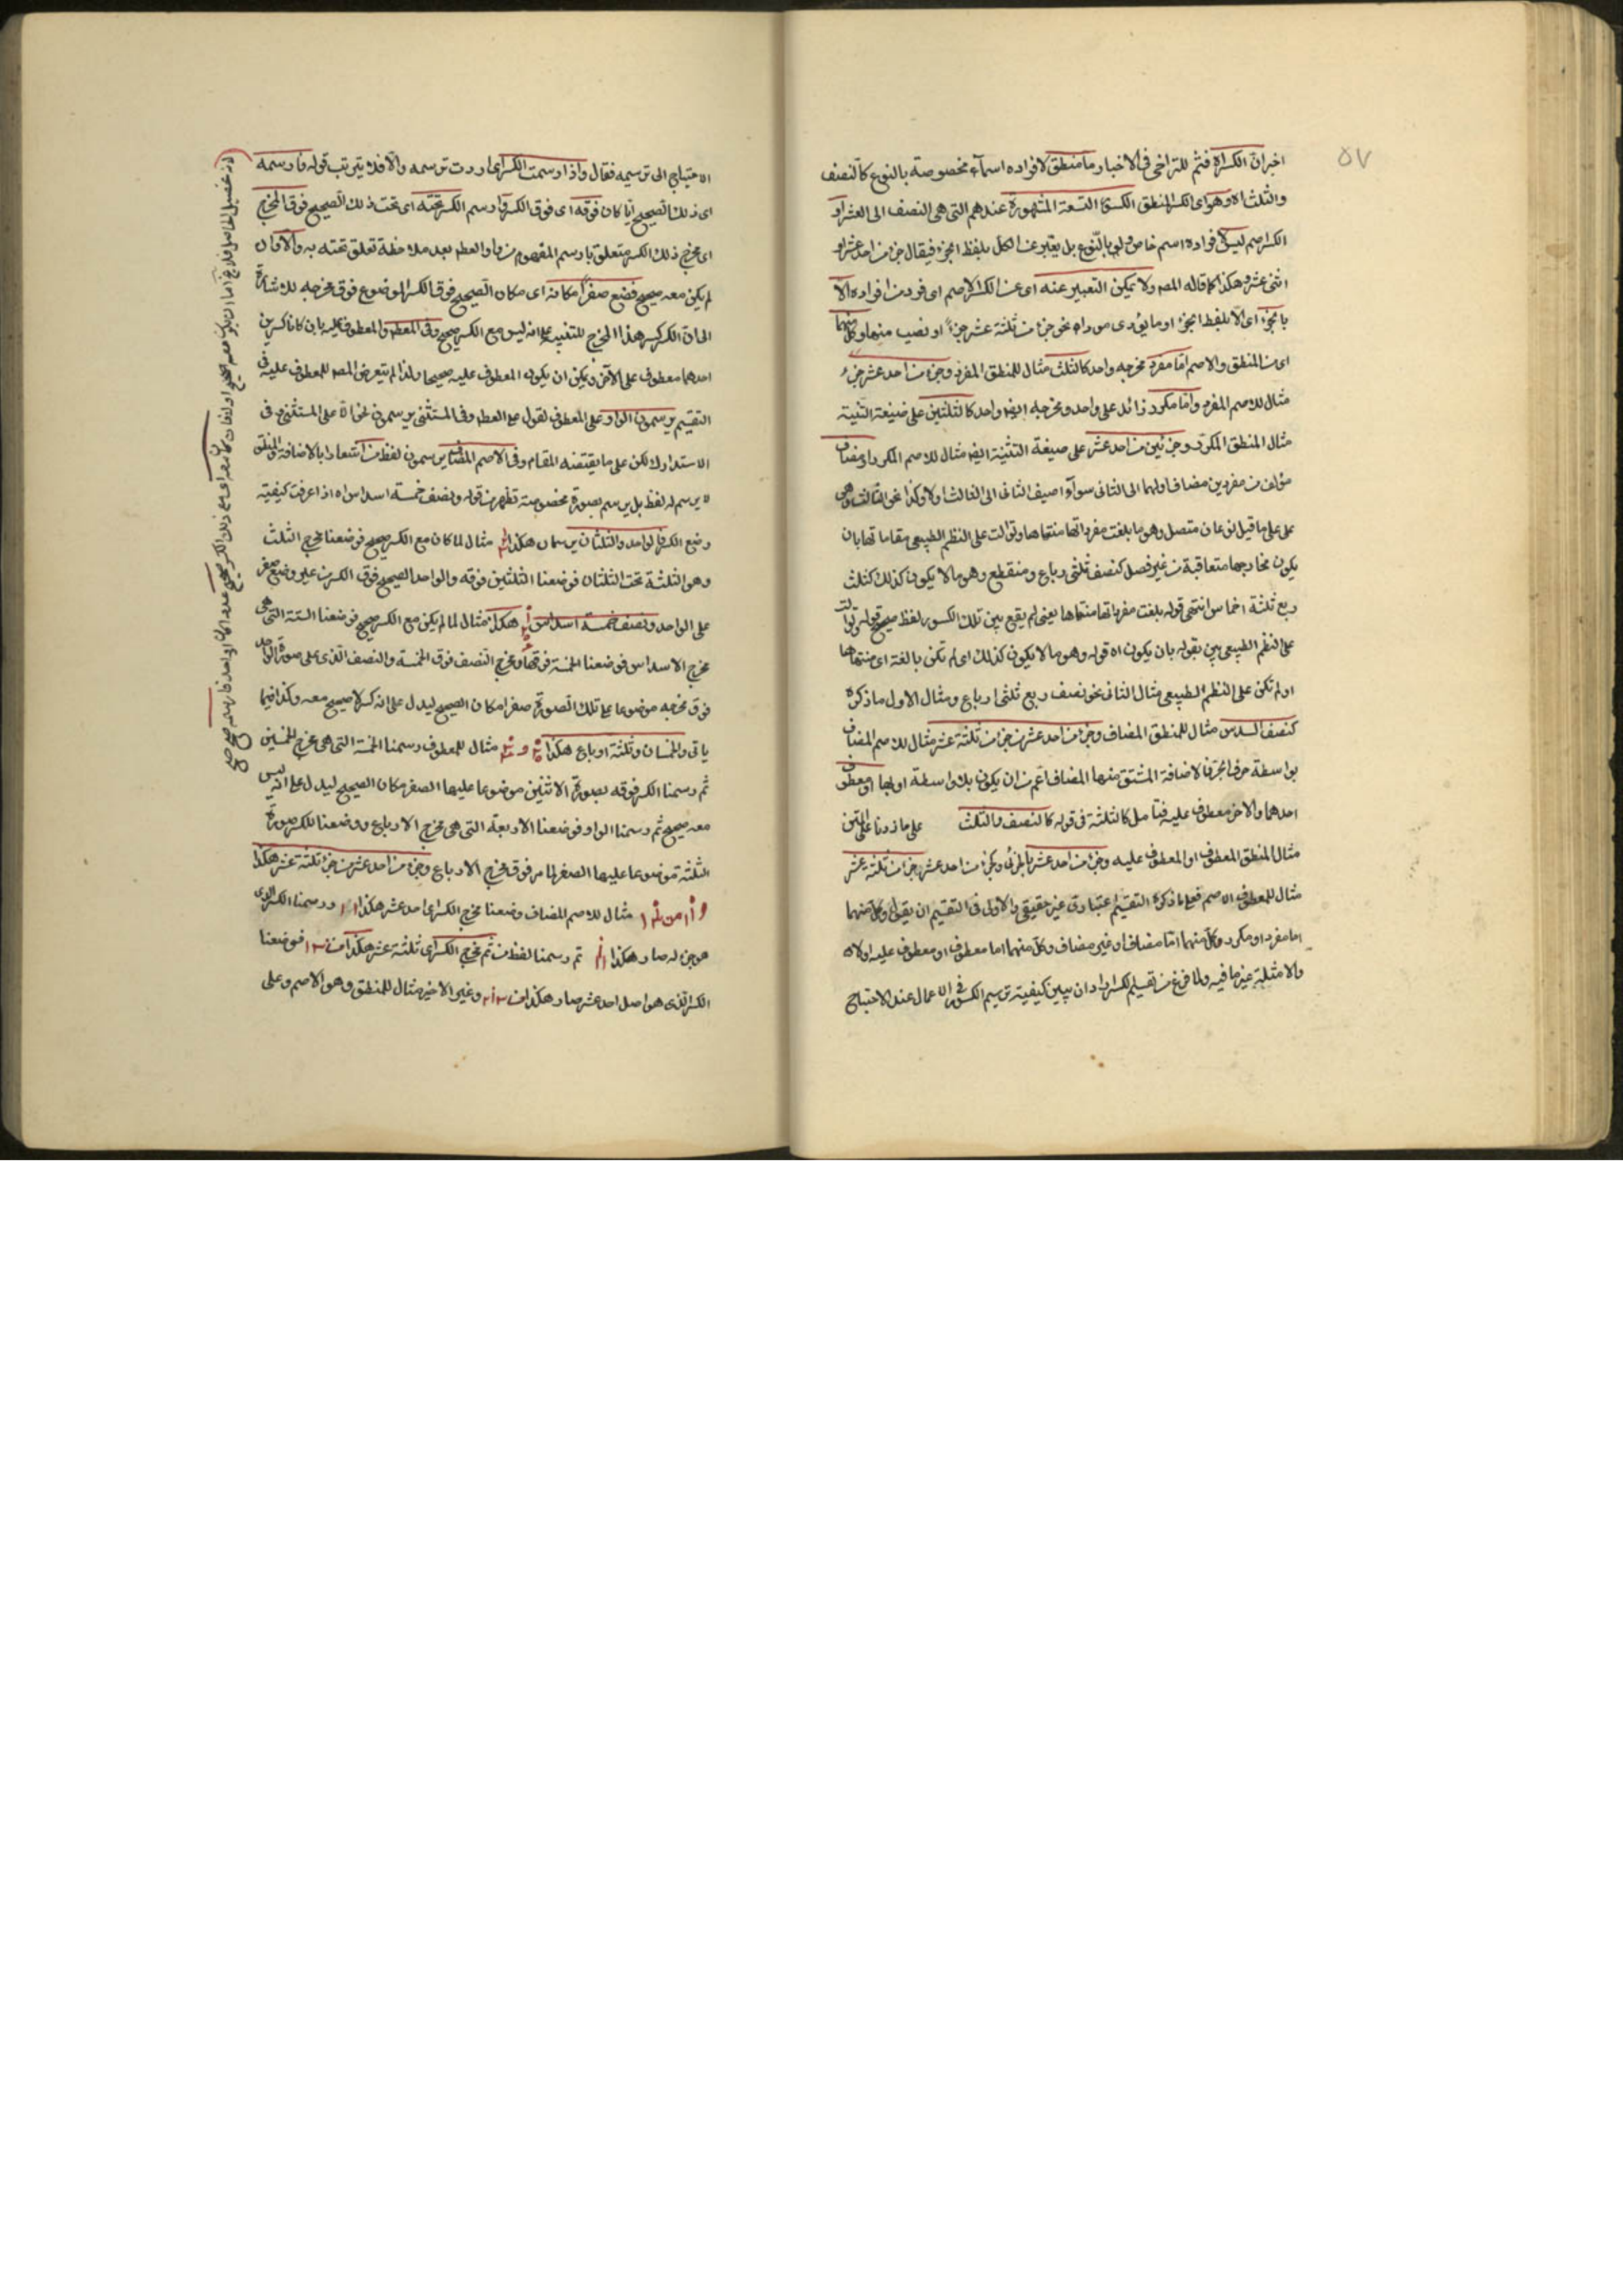 ٥٧
اخبر ان الكسر اه فثم للتراخى فى الاخبار وما منطق لافراده اسماء مخصوصة بالنوع كالنصف
والثلث اه وهو اى الكسر المنطق الكسور التسعة المشهورة عندهم التى هى النصف الى العشر او
الكسر اصم ليس لافراده اسم خاص ولو بالنوع بل يعبر عن الكل بلفظ الجزء فيقال جزء من احد عشر او
اثنى عشر وهكذا كما قاله المص ولا يمكن التعبير عنه اى عن الكسر الاصم اى فرد من افراده الا
بالجزء اى الا بلفظ الجزء او ما يؤدى موداه نحو جزء من ثلثة عشر جزءا او نصيب منها وكل منهما
اى من المنطق والاصم اما مفرد مخرجه واحد كالثلث مثال للمنطق المفرد وجزء من احد عشر جزء
مثال للاصم المفرد واما مكرر زائد على واحد ومخرجه ايضا واحد كالثلثين على صيغة التثنية
مثال المنطق المكرر وجزئين من احد عشر على صيغة التثنية ايضا مثال للاصم المكرر او مضاف
مؤلف من مفردين مضاف اولهما الى الثانى سواء اضيف الثانى الى الثالث اولا وكذا نحو الثالث وهى
على ما قيل نوعان متصل وهو ما بلغت مفرداتها منتهاها وتوالت على النظم الطبيعى مقاماتها بان
يكون مخارجها متعاقبة من غير فصل كنصف ثلثى رباع ومنقطع وهو ما لا يكون كذلك كثلث
ربع ثلثة اخماس انتهى قوله بلغت مفرداتها منتهاها يعنى لم يقع بين تلك الكسور لفظ صحيح قوله وتوالت
على النظم الطبيعى بين بقوله بان يكون اه قوله وهو ما لا يكون كذلك اى لم تكن بالغة اى منتهاها
او لم تكن على النظم الطبيعى مثال الثانى نحو نصف ربع ثلثى ارباع ومثال الاول ما ذكره
كنصف السدس مثال للمنطق المضاف وجزء من احد عشر من جزء من ثلثة عشر مثال للاصم المضاف
بواسطة حرف الجر فالاضافة المشتق منها المضاف اعم من ان يكون بلا واسطة او بها او معطوف
احدهما والاخر معطوف عليه فتامل كالثلثة فى قوله كالنصف والثلث على ما زدنا على المتن
مثال المنطق المعطوف او المعطوف عليه وجزء من احد عشر بالجر وجزء من احد عشر جزء من ثلثة عشر
مثال للمعطوف الاصم فعلى ما ذكره التقسيم اعتبارى غير حقيقى والاولى فى التقسيم ان يقول وكل منهما
اما مفرد او مكرر وكل منهما اما مضاف او غير مضاف وكل منهما اما معطوف او معطوف عليه اولا اه
والامثلة غير خافيه ولما فرغ من تقسيم الكسر اراد ان يبين كيفية ترسيم الكسور فى الاعمال عند الاحتياج
الاحتياج الى ترسيمه فقال واذا رسمت الكسر اى اردت ترسمه والا فلا يترتب قوله فارسمه
اى ذلك الصحيح ايا كان فوقه اى فوق الكسر وارسم الكسر تحته اى تحت ذلك الصحيح فوق المخرج
اى مخرج ذلك الكسر متعلق بارسم المفهوم من واو العطف بعد ملاحظة تعلق تحته به والا وان
لم يكن معه صحيح فضع صفرا مكانه اى مكان الصحيح فوق الكسر الموضوع فوق مخرجه للاشارة
احدهما معطوف على الآخر ويمكن ان يكون المعطوف عليه صحيحا ولذا لم يتعرض المص للمعطوف عليه فى
التقسيم يرسمون الواو على المعطوف لقول على العطف وفى المستثنى يرسمون نحو الا على المستثنى وفى
الاستدراك لكن على ما يقتضيه المقام وفى الاصم المضاف يرسمون لفظ من اشعارا بالاضافة والمنطق
لا يرسم له لفظ بل يرسم بصورة مخصوصة تظهر من قوله ونصف خمسة اسداس اه اذا عرفت كيفية
وضع الكسر فالواحد والثلثان يرسمان هكذا مثال لما كان مع الكسر صحيح فوضعنا مخرج الثلث
وهو الثلثة تحت الثلثان فوضعنا الثلثين فوقه والواحد الصحيح فوق الكسر من غير وضع صفر
على الواحد ونصف خمسة اسداس هكذا مثال لما لم يكن مع الكسر صحيح فوضعنا الستة التى هى
مخرج الاسداس فوضعنا الخمسة فوقها ومخرج النصف فوق الخمسة والنصف الذى على صورة الواحد
فوق مخرجه موضوعا على تلك الصورة صفرا مكان الصحيح ليدل على انه كسر لا صحيح معه وكذا فيما
ياتى والخمسان وثلثة ارباع هكذا مثال للمعطوف رسمنا الخمسة التى هى مخرج الخمسين
ثم رسمنا الكسر فوقه بصورة الاثنين موضوعا عليها الصفر مكان الصحيح ليدل على انه ليس
معه صحيح ثم رسمنا الواو فوضعنا الاربعة التى هى مخرج الارباع ووضعنا للكسر صورة
الثلثة موضوعا عليها الصفر لما مر فوق مخرج الارباع وجزء من احد عشر من جزء ثلثة عشر هكذا
مثال للاصم المضاف وضعنا مخرج الكسر اى احد عشر هكذا ١١ ورسمنا الكسر الذى
هو جزء له صار هكذا ثم رسمنا لفظ من ثم مخرج الكسر اى ثلثة عشر هكذا من ١٣ فوضعنا
الكسر الذى هو اصل احد عشر صار هكذا من ١٣ وغير الاخير مثال للمنطق وهو الاصم وعلى